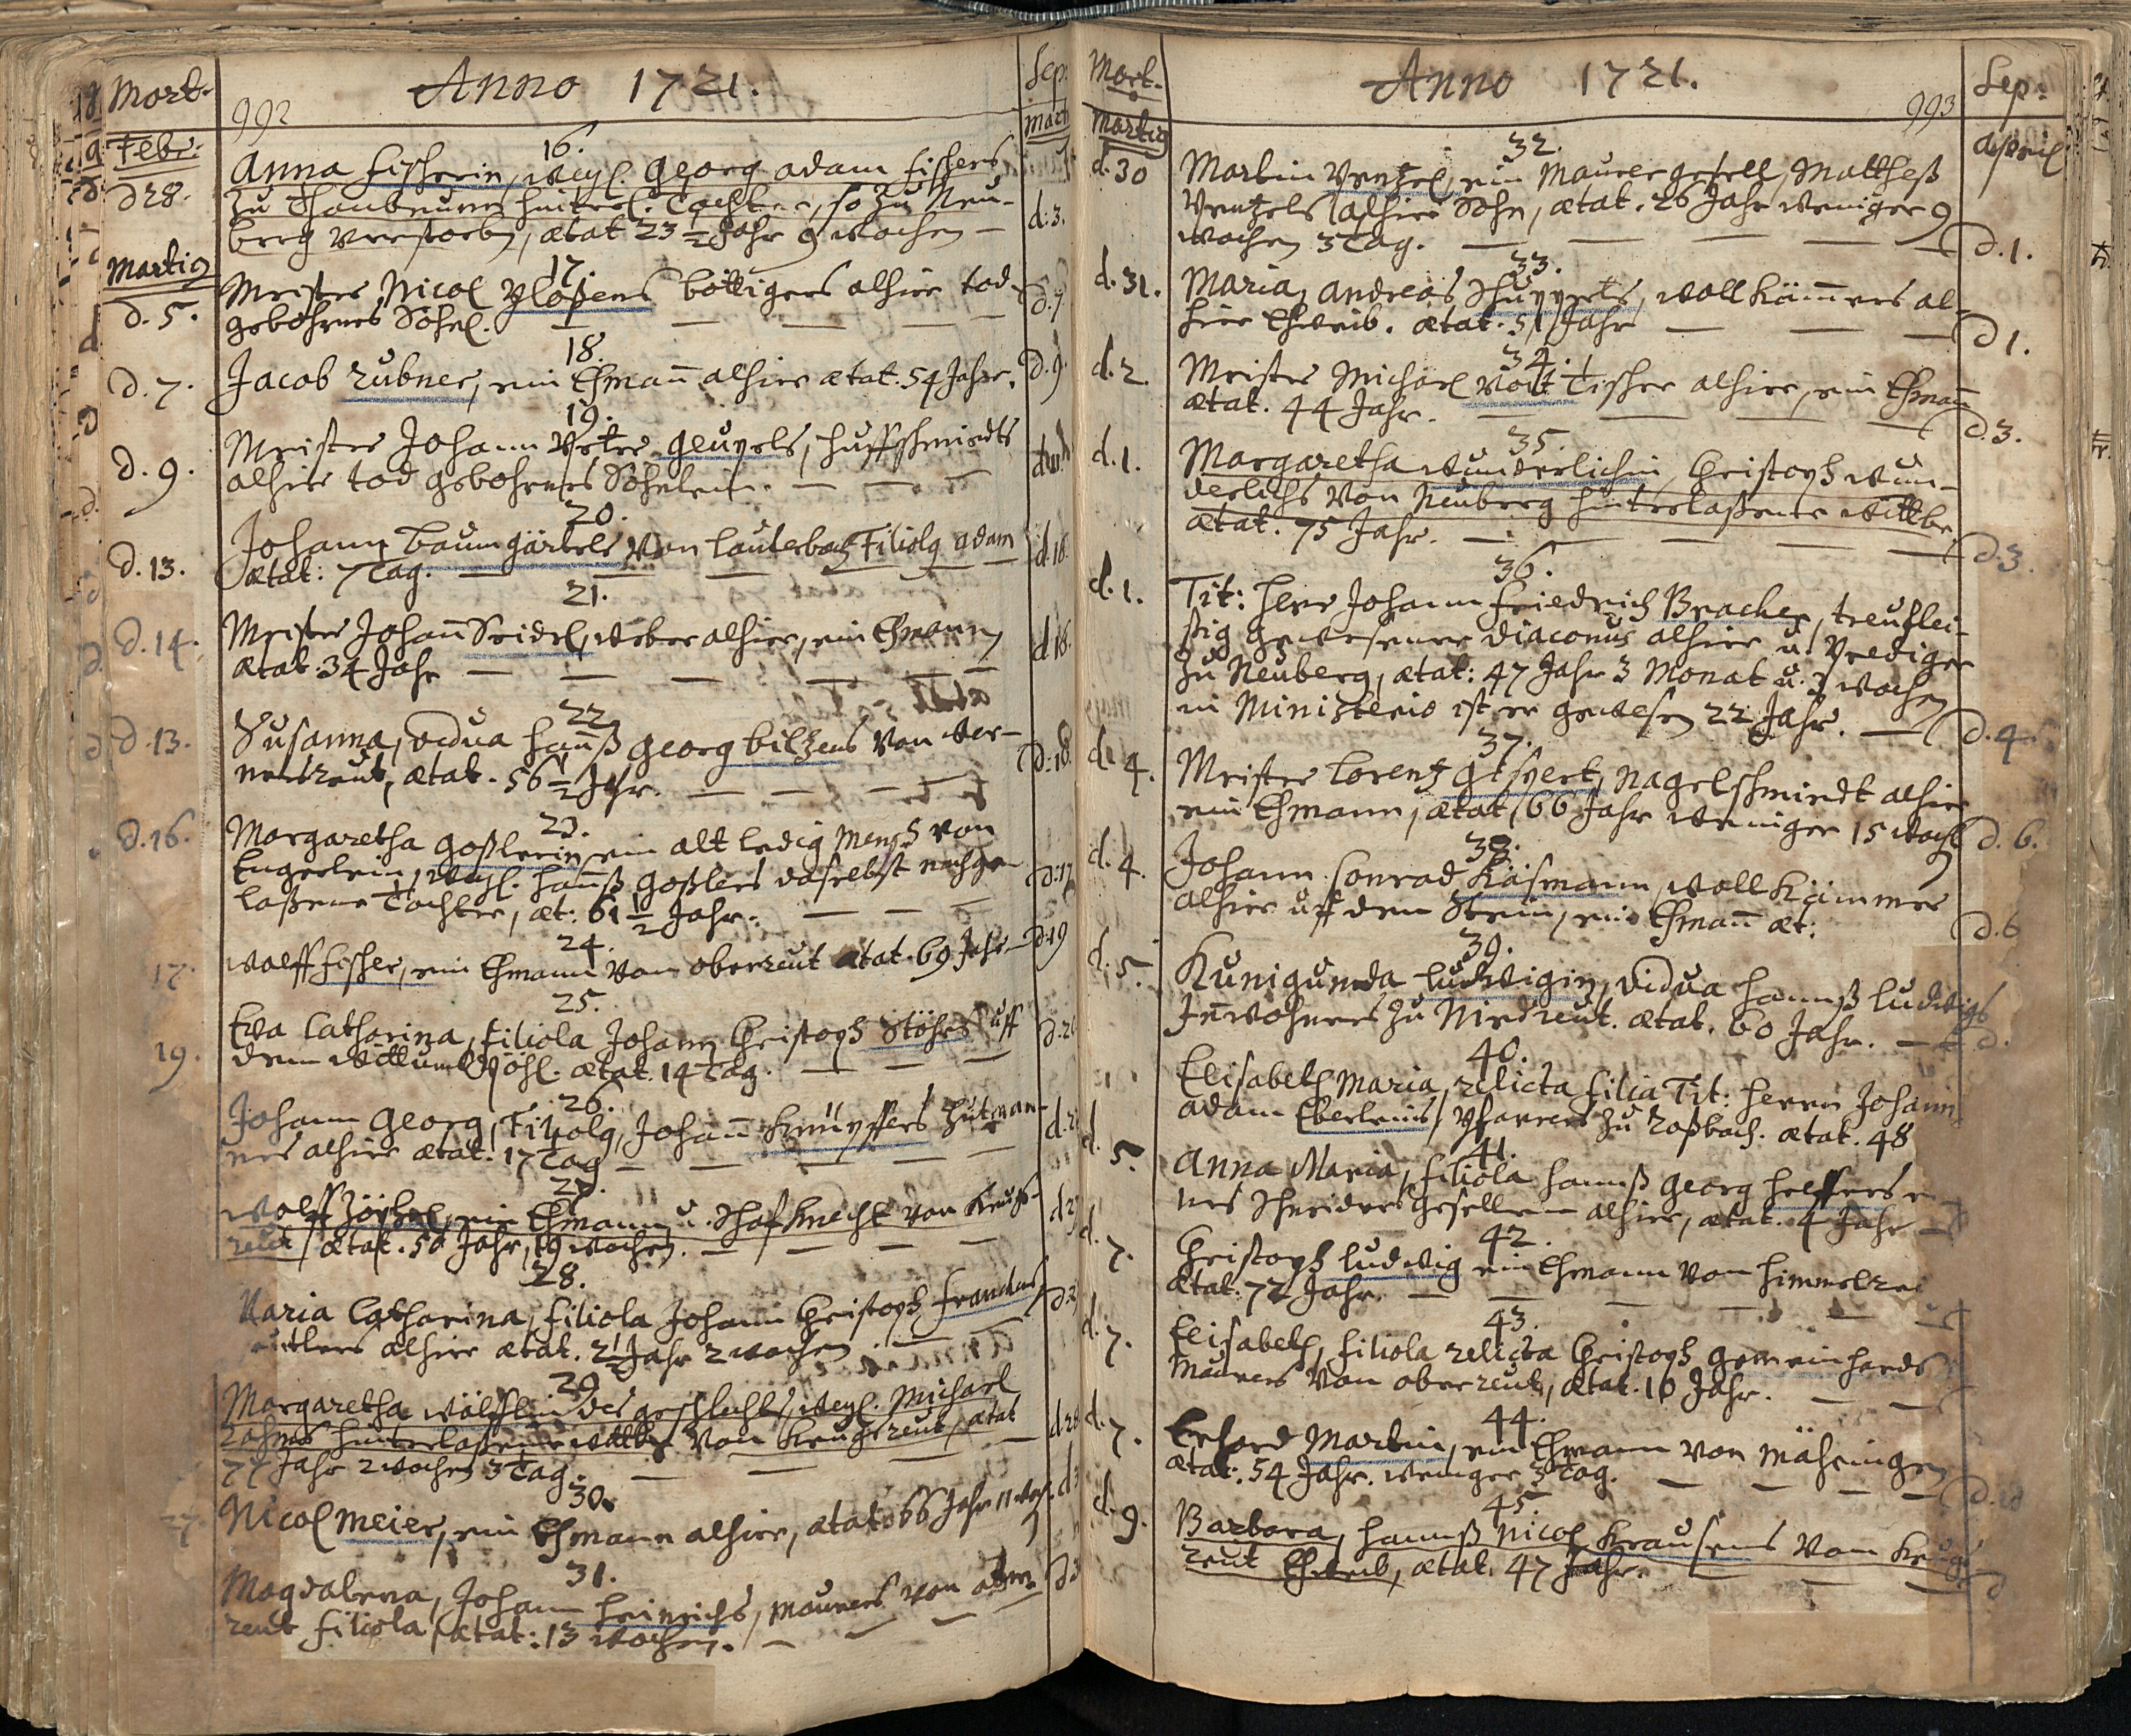 Mort.
992
Anno 1721.
Sep:
Febr:
Mart
16.
d 28.
Anna Fischerin, weyl. Georg Adam Fischers
zu Thonbrunn hinterl. Tochter, so zu Neu-
berg verstorben, ætat 23 ½ Jahr 9 Wochen
d: 3.
Martij
17.
d. 5.
Meister Nicol Ploßens böttigers alhier tod-
gebohrnes Söhnl.
d. 7
18.
d. 7.
Jacob Rubner, ein Ehman̄ alhier ætat. 54 Jahr.
d. 9.
19.
d. 9.
Meister Johann Peter Geupels, huffschmiedts
alhier tod gebohrnes Söhnlein.
20.
d. 13.
Johann Baumgärtels von Lauterbach Filiolq Adam
ætat: 7 Tag.
d. 16.
21.
d. 14.
Meister Johan̄ Seidel, weber alhier, ein Ehmann
ætat: 34 Jahr
d 16.
22.
d. 13.
Susanna, vidua Han̄ß Georg Bilzens von Wer-
nersreut, ætat. 56 ½ Jahr.
d: 18.
23.
d. 16.
Margaretha Goßlerin, ein alt ledig Mensch von
Engerlein, weyl. Han̄ß Goßlers daselbst nachge-
laßene Tochter, æt: 61 ½ Jahr.
d: 17
24.
17.
Wolff Fischer, ein Ehmann von Oberreut ætat. 69 Jahr
d. 19
25.
19.
Eva Catharina, Filiola Johann Christoph Stöhrs uff
dem
ætat. 14 Tag.
26.
Johann Georg, Filiolq, Johan̄ Knüpffers Hutman-
nes alhier ætat: 17 Tag
27.
Wolff
ein Ehmann u. Schafknecht von Krugs-
reut, ætat. 50 Jahr, 19 Wochen.
28.
Maria Catharina, Filiola Johann Christoph Franckens
alhier ætat. 2 ½ Jahr 2 Wochen.
29.
Margaretha Wölfflin des geschlechts, weyl. Michael
hinterlaßene Wittbe von Krugsreut, ætat
77 Jahr 2 Wochen 3 Tag.
30.
27.
Nicol Meier, ein Ehmann alhier, ætat. 66 Jahr 11 Woch.
31.
Magdalena, Johann Heinrichs, Maurers von
reut Filiola, ætat: 13 Wochen.
Mort.
Anno 1721.
993
Sep:
Martij
April
32.
d. 30
Martin Wentzel, ein Maurer gesell, Mattheß
Wentzels alhier Sohn, ætat. 26 Jahr weniger 9
Wochen 3 Tag.
d. 1.
33.
d. 31.
Maria, Andreas
Wollkäm̄ers al-
hier Eheweib. ætat. 51 Jahr
d 1.
34.
d. 2.
Meister Michael Voit Tischer alhier, ein Ehman̄
ætat. 44 Jahr.
d. 3.
35.
d. 1.
Margaretha Wunderlichin, Christoph Wun-
derlichs von Neuberg hinterlaßene Wittbe
ætat. 75 Jahr.
d 3.
36.
d. 1.
Tit: Herr Johann Friedrich Bracher, treufflei-
ßig gewesener Diaconus alhier u. Prediger
zu Neuberg, ætat: 47 Jahr 3 Monat u. 3 Wochen
in Ministerio ist er gewesen 22 Jahr.
d. 4.
37.
d. 4.
Meister Lorentz
Nagelschmiedt alhier
ein Ehmann, ætat. 66 Jahr weniger 15 Woch
d. 6.
38.
d. 4.
Johann Conrad Käsmann, Wollkämmer
alhier uff dem Stein, ein Ehman̄ æt:
d. 6
39.
d. 5.
Kunigunda Ludwigin, vidua Hannß Ludwigs
In̄wohners zu Niedreut. ætat. 60 Jahr.
d.
40.
Elisabeth Maria, relicta filia Tit: Herrn Johann
Adam Eberleins, Pfarrers zu Roßbach. ætat. 48
41.
d. 5.
Anna Maria, Filiola Hannß Georg Helffers ei
nes Schneiders Gesellen alhier, ætat. 4 Jahr
42.
d. 7.
Christoph Ludwig ein Ehmann von Himmelrei
ætat. 72 Jahr.
43.
d. 7.
Elisabeth, Filiola relicta Christoph Gemeinhards
Maurers von Oberreut, ætat. 10 Jahr.
44.
d. 7.
Erhard Martin, ein Ehmann von Mähringen
ætat. 54 Jahr. weniger 3 Tag.
45.
d. 9.
Barbara, Hannß Nicol Krausens von Krugs
reut Eheweib, ætat. 47 Jahr.